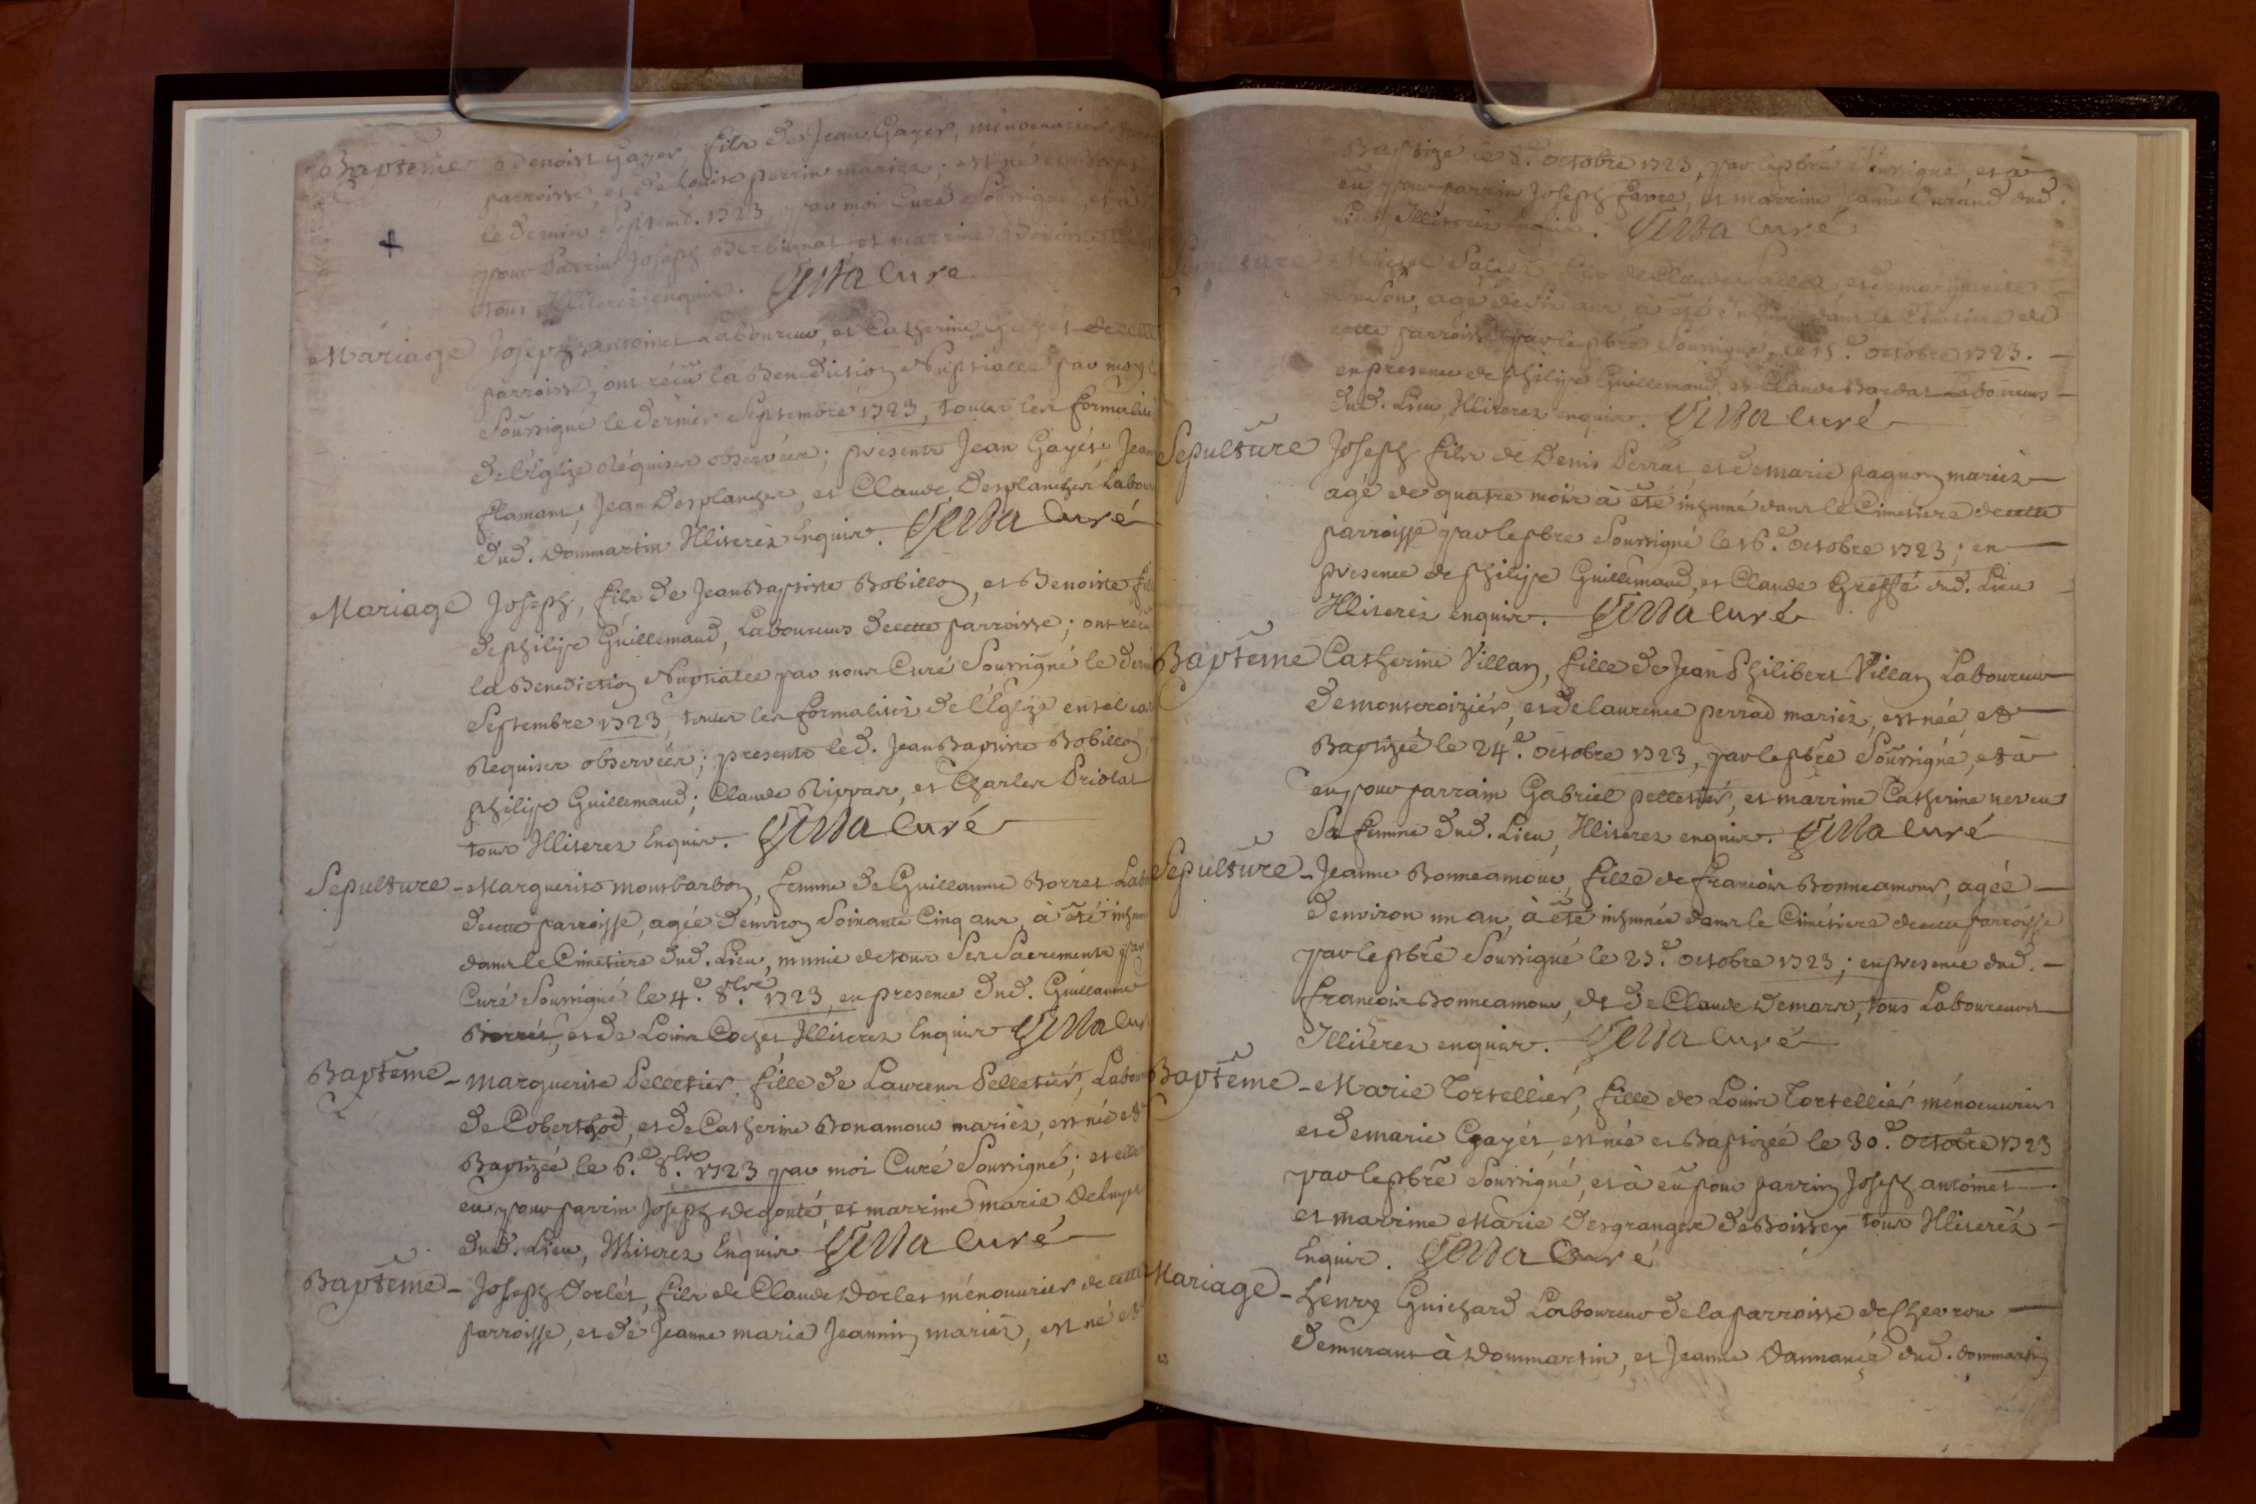 Bapteme Benoist Gayet, fils de Jean Gayet, menouvrier
parroisse, et de Louise perrin mariez; est né et
le dernier Septemb. 1723, par moi Curé Soussigné, et à
pour Parrin Joseph et marrine
tous Illiterez enquis. Curé
Mariage Joseph antoinet Laboureur, et Catherine Gayet de cette
parroisse, ont recu la Benediction Nuptialle par moy
Soussigné le dernier Septembre 1723, toutes les formalités
de l'Eglize Réquises observées; presents Jean Gayet, Jean
flamant, Jean Desplanches, et Claude Desplanches Labour
dud. Dommartin Illiterez Enquis. Curé
Mariage Joseph, fils de Jean Baptiste Bobillon, et Benoiste fil
de philipe Guillemaud, Laboureurs de cette parroisse; ont recu
la Benediction Nuptialle par nous Curé Soussigné le derni
Septembre 1723, toutes les formalités de l'Eglize en tel cas
Requises observées; presents led. Jean Baptiste Bobillon,
philipe Guillemaud; Claude Rippas, et Charles Priolat
tous Illiterez Enquis. Curé
Sepulture - Marguerite montbarbon, femme de Guillaume Borret Lab
de cette parroisse, agée d'environ Soixante Cinq ans, à été inhum
dans le Cimetiere dud. Lieu, munie de tous Ses Sacrements par
Curé Soussigné le 4.e 8.bre 1723, en presence dud. Guillaume
Borret, et de Louis Cochet Illiterez Enquis Cur
Baptême - marguerite Pelletier, fille de Laurent Pelletier, Labour
de Coberthod, et de Catherine Bonamour mariez, est née et
Baptizée le 6.e 8.bre 1723 par moi Curé Soussigné; et elle
eu pour parrin Joseph et marrine marie
dud. Lieu, Illiterez Enquis Curé
Baptême - Joseph Dorlet, fils de Claude Dorlet ménouvrier de cette
parroisse, et de Jeanne marie Jeannin mariez, est né et
Baptize le 8.e octobre 1723, par le pbre Soussigné, et à
eu pour parrin Joseph favre, et marrine Jeanne Durand dud.
Lieu Illiterez enquis. Curé
Sepulture Michel fils de Claude et de marguerite
agé de Six ans à été inhumé dans le Cimetiere de
cette parroisse par le pbre Soussigné, le 15.e octobre 1723. -
en presence de philipe Guillemaud, et Claude Laboureurs -
dud. Lieu, Illiterez enquis. Curé
Sepulture Joseph fils de Denis Perrat et de marie pagnon mariez -
agé de quatre mois à été inhumé dans le Cimetiere de cette
parroisse par le pbre Soussigné le 16.e octobre 1723; en -
presence de philipe Guillemaud, et Claude Greffé dud. Lieu
Illiterez enquis. Curé
Baptême Catherine Villan, fille de Jean Philibert Villan Laboureur -
de montcroizier, et de laurence perrad mariez, est née, et -
Baptizée le 24.e octobre 1723, par le pbre Soussigné, et à
eu pour parrain Gabriel pelletier, et marrine Catherine neveu
Sa femme dud. Lieu, Illiterez enquis. Curé
Sepulture - Jeanne Bonneamour, fille de francois Bonneamour, agée -
d'environ un an, à été inhumée dans le Cimétiere de cette parroisse
par le pbre Soussigné le 25.e octobre 1723; en presence dud. -
francois Bonneamour, et de Claude Demars, tous Laboureurs
Illiterez enquis. Curé
Baptême - Marie Tortellier, fille de Louis Tortellier ménouvrier
et de marie Gayet, est née et Baptizée le 30.e octobre 1723
par le pbre Soussigné, et à eu pour parrin Joseph antoinet -
et marrine Marie Desgranges de Boissey tous Illiterez -
Enquis. Curé
Mariage - henry Guichard Laboureur de la parroisse de Chevrou -
demurant à Dommartin, et Jeanne dud. dommartin